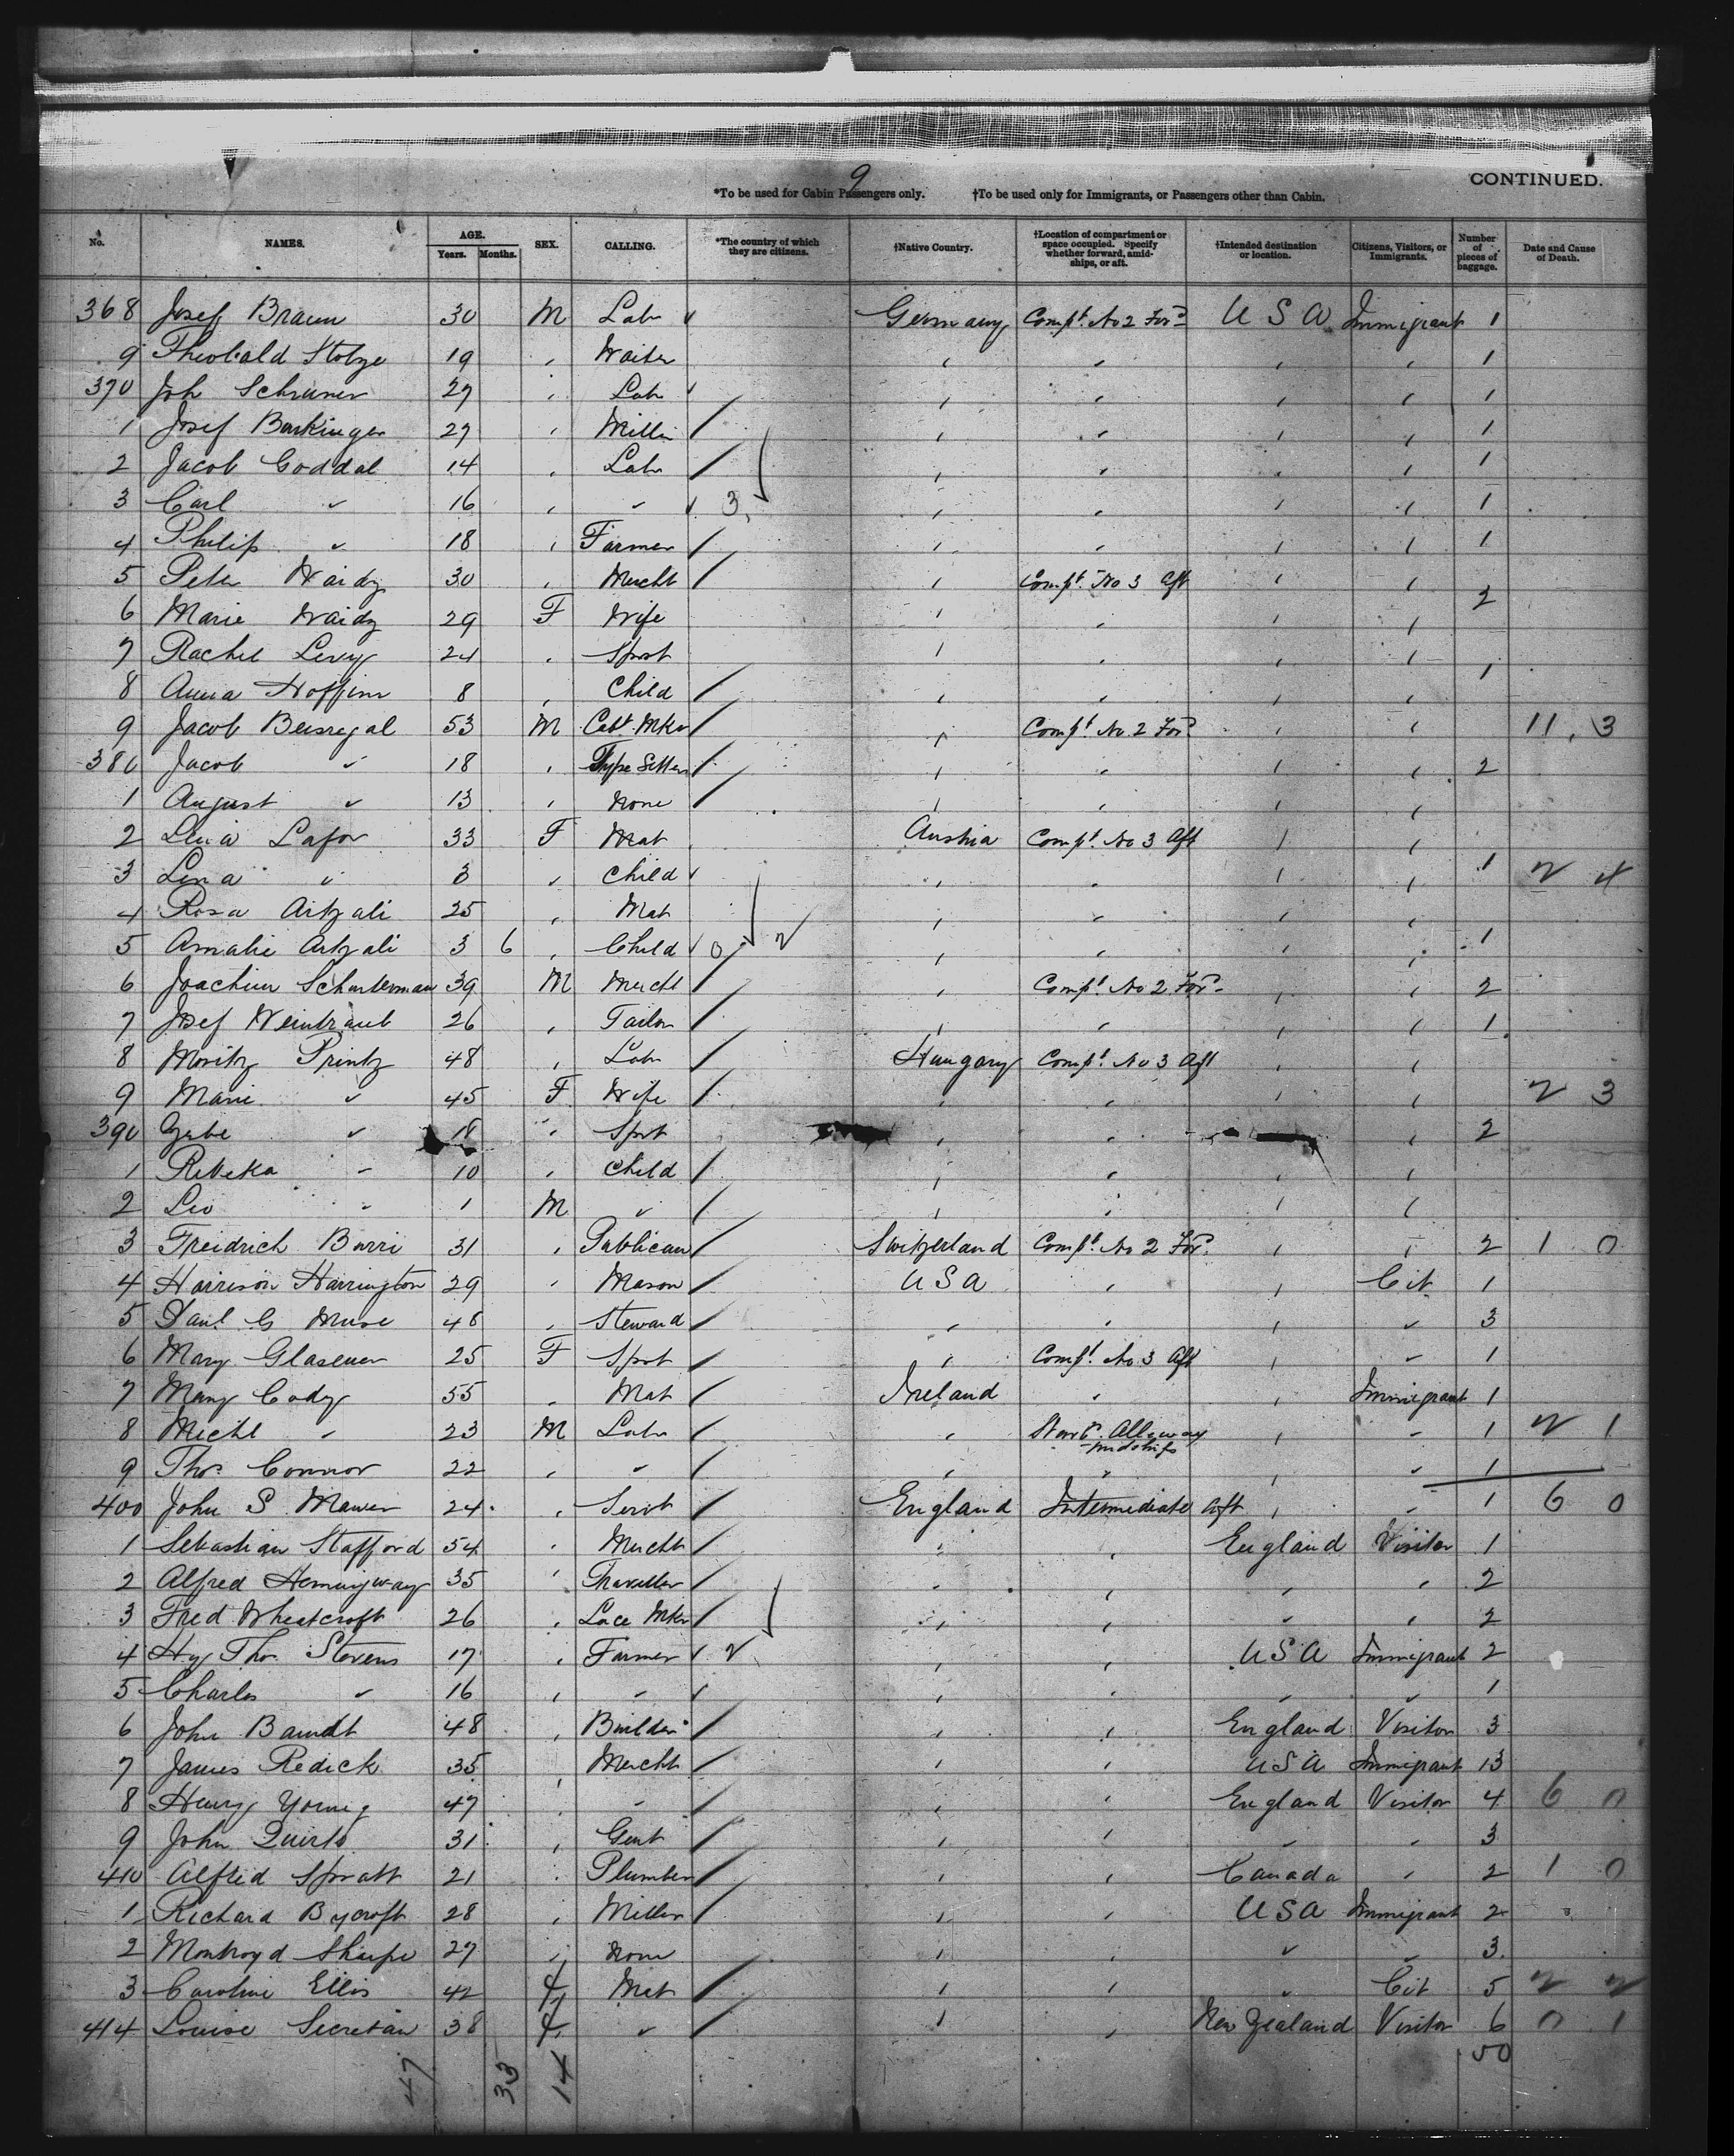 9
*To be used for Cabin Passengers only. †To be used only for Immigrants, or Passengers other than Cabin. CONTINUED.
No. NAMES. AGE. Years. Months. SEX. CALLING. *The country of which they are citizens. †Native Country. †Location of compartment or space occupied. Specify whether forward, amidships, or aft. †Intended destination or location. Citizens, Visitors, or Immigrants. Number of pieces of baggage. Date and Cause of Death.
368 Josef Braun 30 M Labr Germany Compt. No 2 Ford U S A Immigrant 1
9 Theobald Stolze 19 " Waiter " " " " 1
370 Joh 27 " Labr " " " " 1
1 Josef Barkinger 27 " Miller " " " " 1
2 Jacob Goddal 14 " Labr " " " " 1
3 Carl " 16 " " 3 " " " " 1
4 Philip " 18 " Farmer " " " " 1
5 Peter Waidy 30 " Mercht " Compt. No 3 Aft " "
6 Marie Waidy 29 F Wife " " " " 2
7 Rachel Levy 24 " Spst " " " "
8 Anna 8 " Child " " " " 1
9 Jacob Beisregal 53 M Cabt. Mkr " Compt. No 2 Ford " " 11 . 3
380 Jacob " 18 " Type Setter " " " " 2
1 August " 13 " None " " " "
2 Lafor 33 F Mat Austria Compt. No 3 Aft " "
3 Lina " 8 " Child " " " " 1 2 4
4 Rosa Artzali 25 " Mat " " " "
5 Amalie Artzali 3 6 " Child 0 2 " " " " 1
6 Joachim 39 M Mercht " Compt. No 2 Ford " " 2
7 Josef Weintraub 26 " Tailor " " " " 1
8 Moritz Printz 48 " Labr Hungary Compt. No 3 Aft " "
9 Marie " 45 F Wife " " " " 2 3
390 " 18 " Spst " " " " 2
1 Rebeka " 10 " Child " " " "
2 Leo " 1 M " " " " "
3 Freidrich Burri 31 " Publican Switzerland Compt. No 2 Ford " " 2 1 0
4 Harrison Harrington 29 " Mason U S A " " Cit 1
5 Paul G Muse 48 " Steward " " " " 3
6 Mary Glasener 25 F Spst " Compt. No 3 Aft " " 1
7 Mary Cody 55 " Mat Ireland " " Immigrant 1
8 Michl " 23 M Labr " Starbd. Alleyway Midships " " 1 2 1
9 Thos. Connor 22 " " " " " " 1
400 John S. Mawer 24 " Servt England Intermediate aft " " 1 6 0
1 Sebastian Stafford 54 " Mercht " " England Visitor 1
2 Alfred Hemingway 35 " Traveller " " " " 2
3 Fred Wheatcroft 26 " Lace Mkr " " " " 2
4 Hy Thos. Stevens 17 " Farmer 2 " " U S A Immigrant 2
5 Charles " 16 " " " " " " 1
6 John Barndt 48 " Builder " " England Visitor 3
7 James Redick 35 " Mercht " " U S A Immigrant 13
8 Henry Young 47 " " " " England Visitor 4 6 0
9 John Quirts 31 " Gent " " " " 3
410 Alfred Spratt 21 " Plumber " " Canada " 2 1 0
1 Richard Bycroft 28 " Miller " " U S A Immigrant 2
2 Sharpe 27 " None " " " " 3
3 Caroline Ellis 42 F Mat " " " Cit 5 2 2
414 Louise Secretan 38 F " " " New Zealand Visitor 6 0 1
47 33 14 50